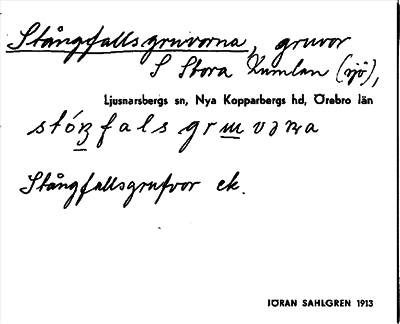 Stångfallsgruvorna, gruvor
S Stora Kumlan (sjö),
Ljusnarsbergs sn, Nya Kopparbergs hd, Örebro län
Stångfallsgrufvor ek.
JÖRAN SAHLGREN 1913